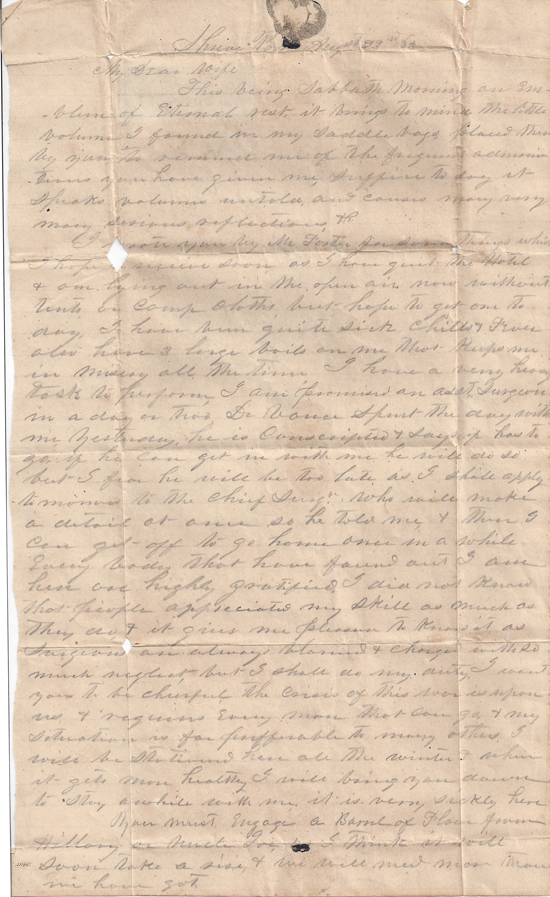 My Dear Wife
This being Sabbath Morning an Em-
-blem of Eternal rest, it brings to mind the little
volume I found in my Saddle bags placed there
by you, to remind me of the frequent admoni
tions you have given me, suffice to say it
Speaks volumes untold, and causes many very
many serious reflections, &c.
I you by Mr Foster for some things which
I hope receive soon as I have quit the Hotel
& am lying out in the open air now without
tents or Camp Cloths but hope to get one to
day, I have been quite sick Chills & Fever
also have 3 large boils on me that keeps me
in misery all the time I have a very heavy
task to perform I am promised an asst. Surgeon
in a day or two Dr Vance Spent the day with
me yesterday, he is Conscripted & says if has to
go, if he can get in with me he will do so
but I fear he will be too late, as I shall apply
tomorrow to the Chief Surgn. who will make
a detail at once so he told me, & then I
can get off to go home once in a while
Every body that have found out I am
here are highly gratified, I did not know
that people appreciated my skill as much as
they do & it gives me pleasure to know it as
Surgeons are always blamed & charged with so
much neglect but I shall do my duty, I want
you to be cheerful, the Crisis of this war is upon
us, & requires Every man that can go, & my
situation is far preferable to many others, I
will be stationed here all the winter & when
it gets more healthy I will bring you down
to stay awhile with me, it is very sickly here
You must Engage a Barrel of Flour from
Hillary or Uncle I think it will
soon take a rise, & we will need more than
we have got